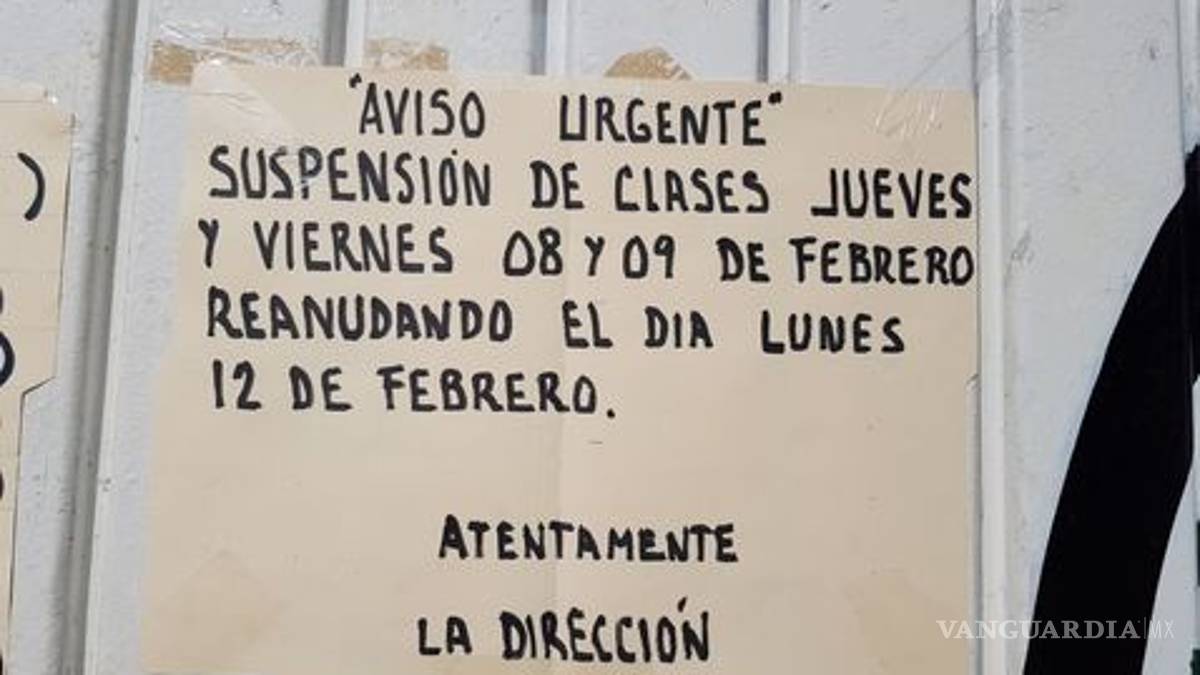 "AVISO URGENTE"
SUSPENSIÓN DE CLASES JUEVES
Y VIERNES 08 Y 09 DE FEBRERO
REANUDANDO EL DIA LUNES
12 DE FEBRERO.
ATENTAMENTE
LA DIRECCIÓN
VANGUARDIA|MX